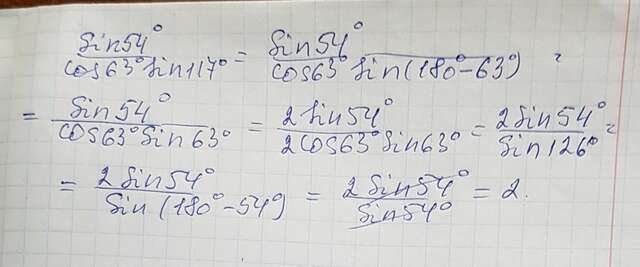 sin54° / cos63° sin117° = sin54° / cos63° sin(180°-63°) =
= sin54° / cos63° sin63° = 2 sin54° / 2cos63° sin63° = 2 sin54° / sin126° =
= 2 sin54° / sin(180°-54°) = 2 sin54° / sin54° = 2.